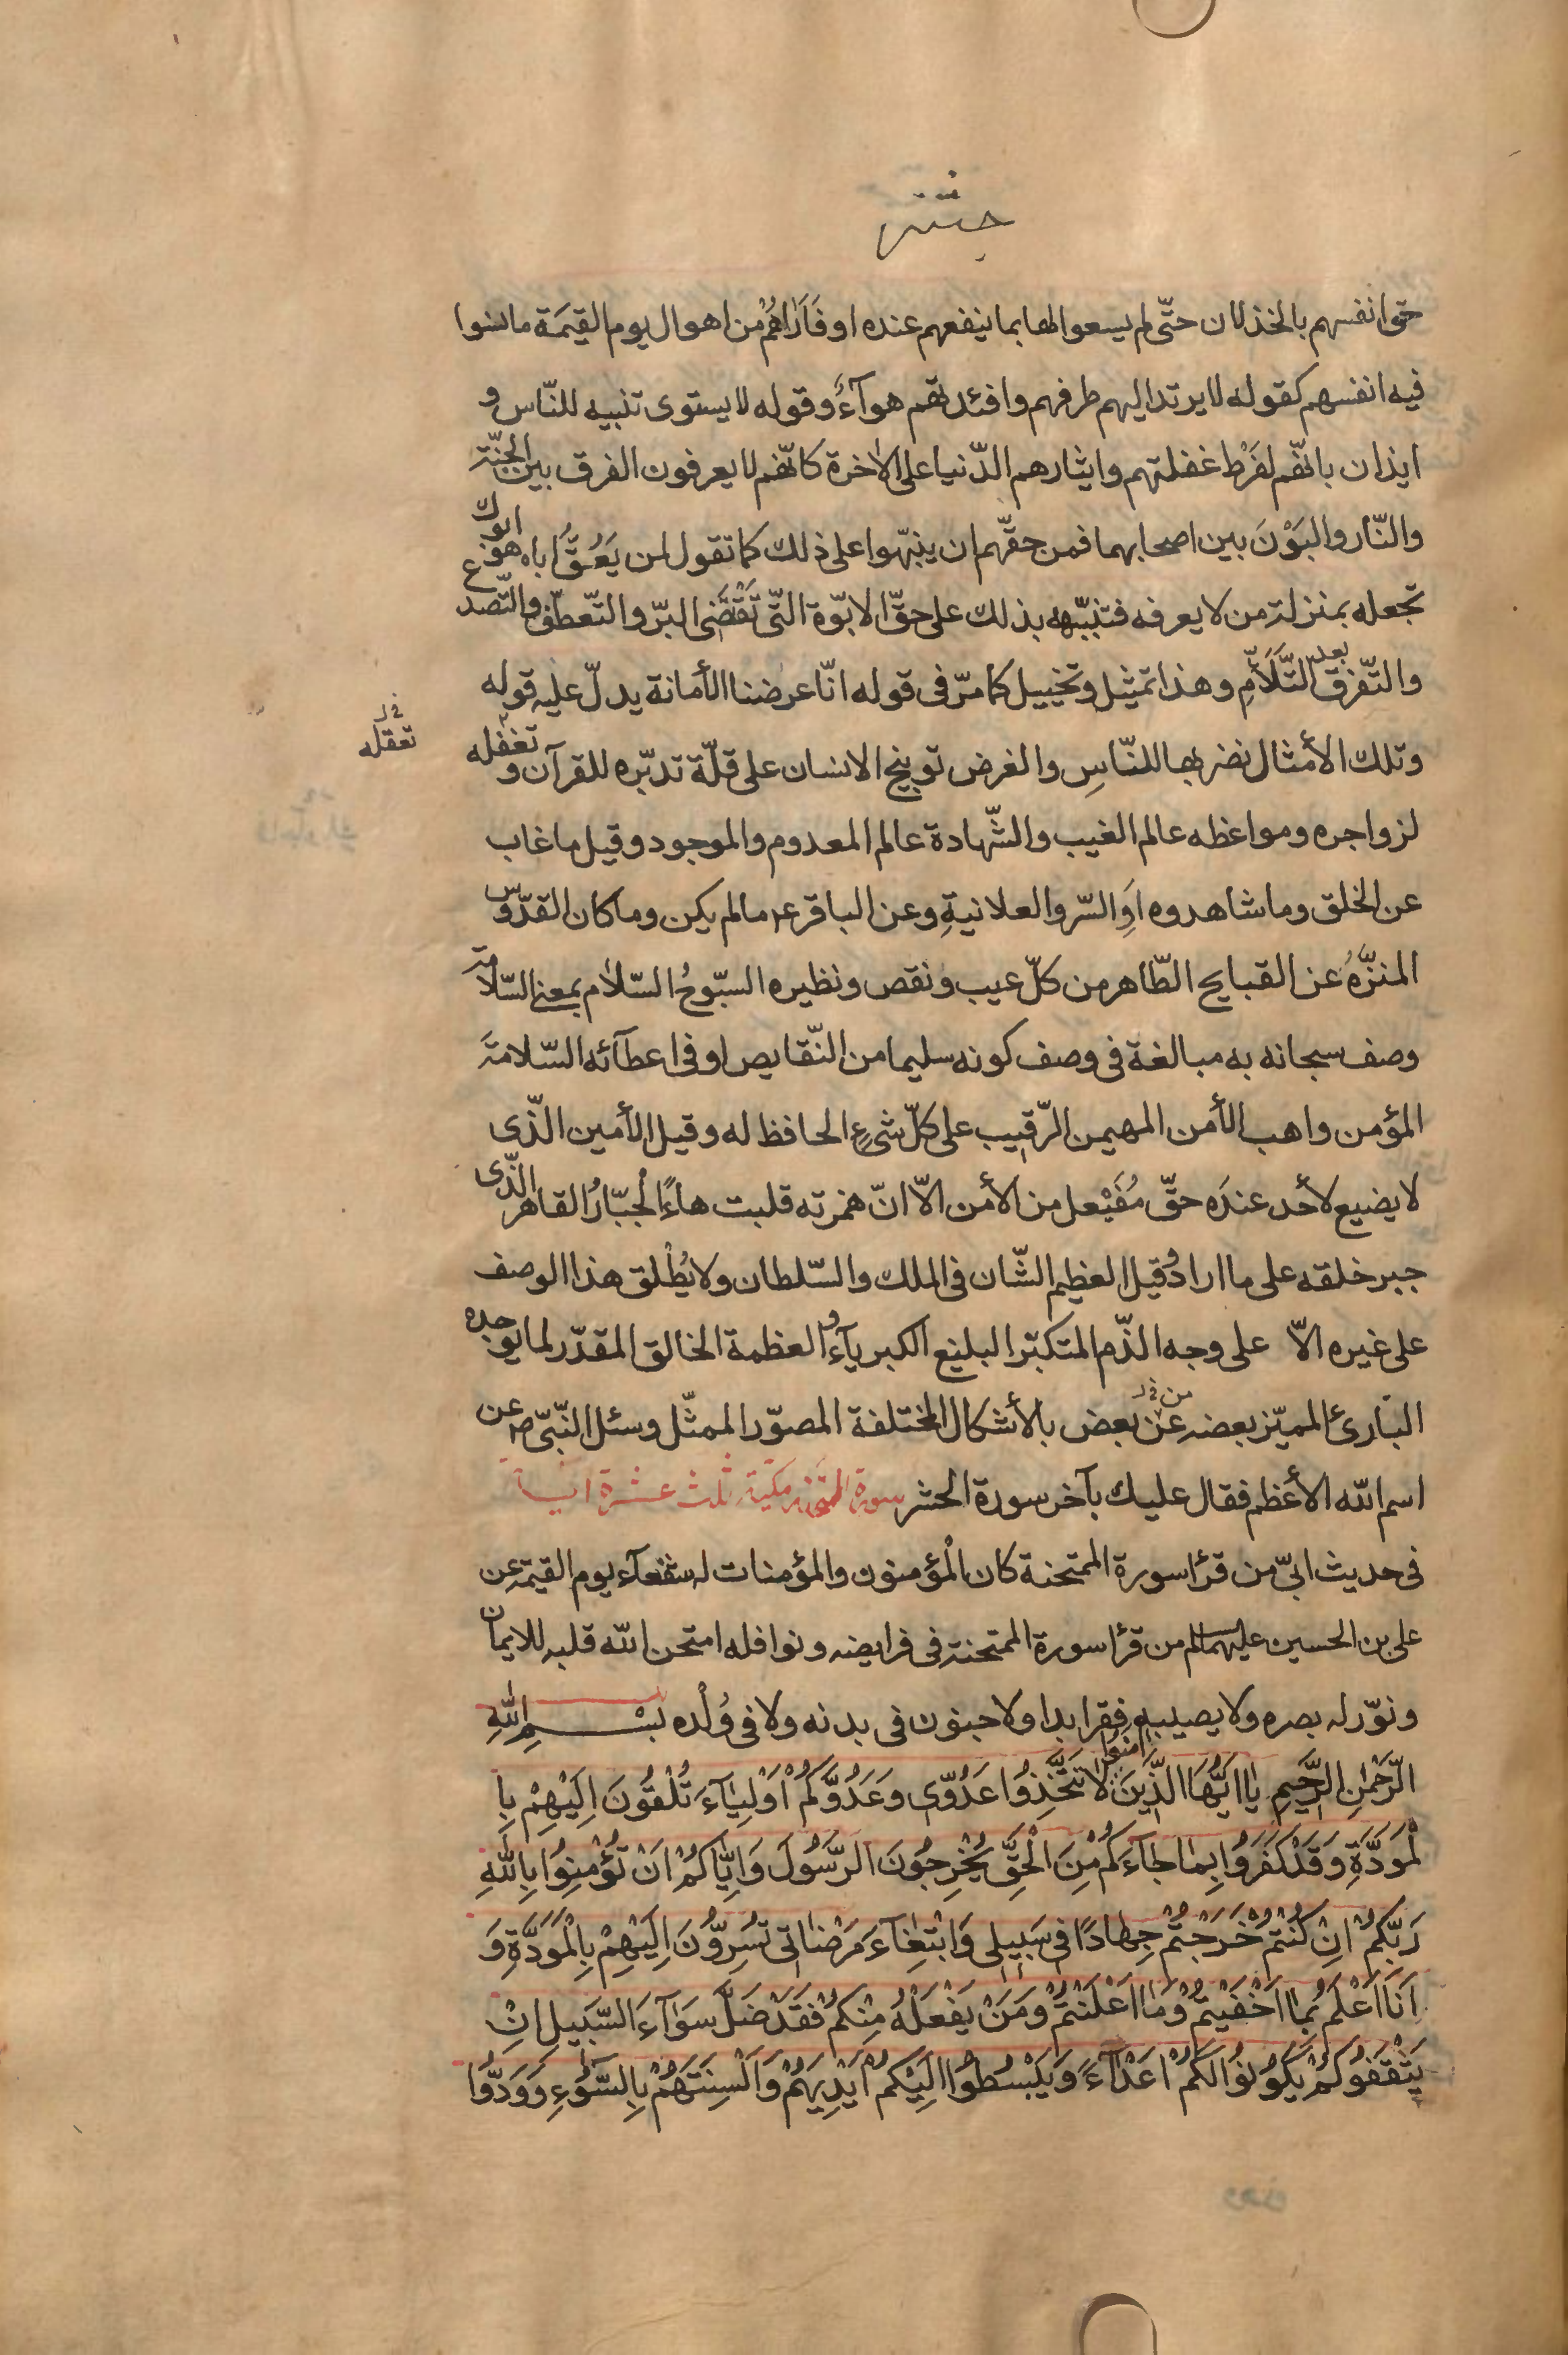 حشر
حق انفسهم بالخذلان حتّى لم يسعوا لها بما ينفعهم عنده او فَاَرَاهُمْ من اهوال يوم القيٰمَة ما نسوا
فيه انفسهم كقوله لا يرتد اليهم طرفهم وافئدتهم هوآءٌ وقوله لا يستوى تنبيه للنّاس و
ايذان بانّهم لفَرْط غفلتهم وايثارهم الدّنيا على الاٰخرة كانّهم لا يعرفون الفرق بين الجنّة
والنّار والبَوْنَ بين اصحابهما فمن حقّهم ان ينبّهوا على ذلك كما تقول لمن يَعُقُّ اباه هو ابوك
تجعله بمنزلة من لا يعرفه فتنبّهه بذلك على حقّ الابوّة الّتى تَقْتَضى البرّ والتّعطّف والتّصدع
والتّفرق بعد التَّلَأُمِ وهذا تمثيل وتخييل كما مرّ فى قوله انّا عرضنا الأمانة يدلّ عليه قوله
وتلك الأمثال نضربها للنّاسِ والغرض توبيخ الانسان على قلّة تدبّره للقرآن و تغفله
تعقله خ ل
لزواجره ومواعظه عالم الغيب والشّهادة عالم المعدوم والموجود وقيل ما غاب
عن الخلق وما شاهدوه اَوِ السّر والعلانيةِ وعن الباقر ع ما لم يكن وما كان القدّوس
المنزَّهُ عن القبايح الطّاهر من كلّ عيب ونقص ونظيره السبّوحُ السّلاٰم بمعنى السّلامة
وصف سبحانه به مبالغة فى وصف كونه سليما من النّقايص او فى اعطآئه السّلامةَ
المؤمن واهب الأمن المهيمن الرّقيب على كلّ شىءٍ الحافظ له وقيل الأمين الّذى
لا يضيع لأحد عندَه حقّ مُفَيْعل من الأمن الاّ انّ همزته قلبت هاءً الْجبّارُ القاهر الّذى
جبر خلقه على ما اراد وُقيل العظيم الشّان فى الملك والسّلطان ولا يُطْلق هذا الوصف
على غيره الاّ على وجه الذّم المتكبّر البليغ الكبريآء و العظمة الخالق المقدّر لما يوجده
البٰارئ المميّز بعضه عن بعض بالأشكال المختلفة المصوّر الممثّل وسئل النّبىّ ص عن
من خ ل
اسم الله الأعظم فقال عليك بآخر سورة الحشر سورة الممتحنة مكية ثلث عشرة ايا
فى حديث ابىّ من قرأ سورة الممتحنة كان الْمؤمنون والمؤمنات له شفعآء يوم القيٰمة عن
على بن الحسين عليهما السلم من قرأ سورة الممتحنة فى فرايضه ونوافله امتحن الله قلبه للايمان
ونوّر له بصره ولا يصيبه فقر ابدا ولا جنون فى بدنه ولا فى وُلْده بِسْمِ اللّٰهِ
الرَّحْمٰنِ الرَّحيمِ يٰا اَيُّهَا الَّذينَ اٰمَنُوا لاٰ تَتَّخِذُوا عَدُوّى وَعَدُوَّكُمْ اَوْلِيٰآءَ تُلْقُونَ اِلَيْهِمْ بِا
لْمَوَدَّةِ وَقَدْ كَفَرُوا بِمٰا جٰآءَكُمْ مِنَ الْحَقِّ يُخْرِجُونَ الرَّسُولَ وَاِيّٰاكُمْ اَنْ تُؤْمِنُوا بِاللّٰهِ
رَبِّكُمْ اِنْ كُنْتُمْ خَرَجْتُمْ جِهٰادًا فى سَبيلى وَابْتِغٰآءَ مَرْضٰاتى تُسِرُّونَ اِلَيْهِمْ بِالْمَوَدَّةِ وَ
اَنَا اَعْلَمُ بِمٰا اَخْفَيْتُمْ وَمٰا اَعْلَنْتُمْ وَمَنْ يَفْعَلْهُ مِنْكُمْ فَقَدْ ضَلَّ سَوٰآءَ السَّبيلِ اِنْ
يَثْقَفُوكُمْ يَكُونُوا لَكُمْ اَعْدٰآءً وَيَبْسُطُوا اِلَيْكُمْ اَيْدِيَهُمْ وَاَلْسِنَتَهُمْ بِالسُّوءِ وَوَدُّوا